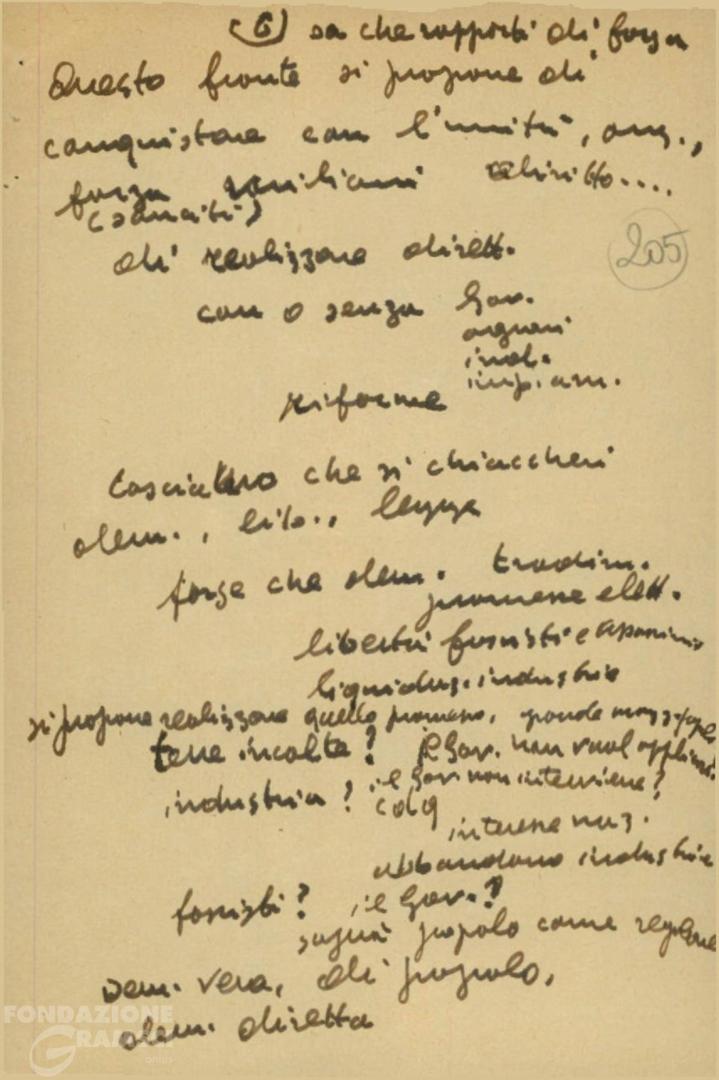 (6) sa che rapporti di forza
Questo fronte si propone di
conquistare con l'unità, org.,
forza diritto....
(sanciti)
di realizzare dirett.
con o senza Gov.
organi
ind.
205
riforme
Lasciamo che si chiaccheri
dem., lib., legge
forse che dem. tradim.
promesse elett.
libertà fascisti e
liquidaz. industrie
si propone realizzare quello promesso, grande magg. pop.
terre incolte? il Gov. non vuol
industria? il Gov. non interviene?
cdg
interesse naz.
abbandono industrie
fascisti? il Gov.?
saprà popolo come
dem. vera, di popolo,
dem. diretta
FONDAZIONE
GRAMSCI
onlus